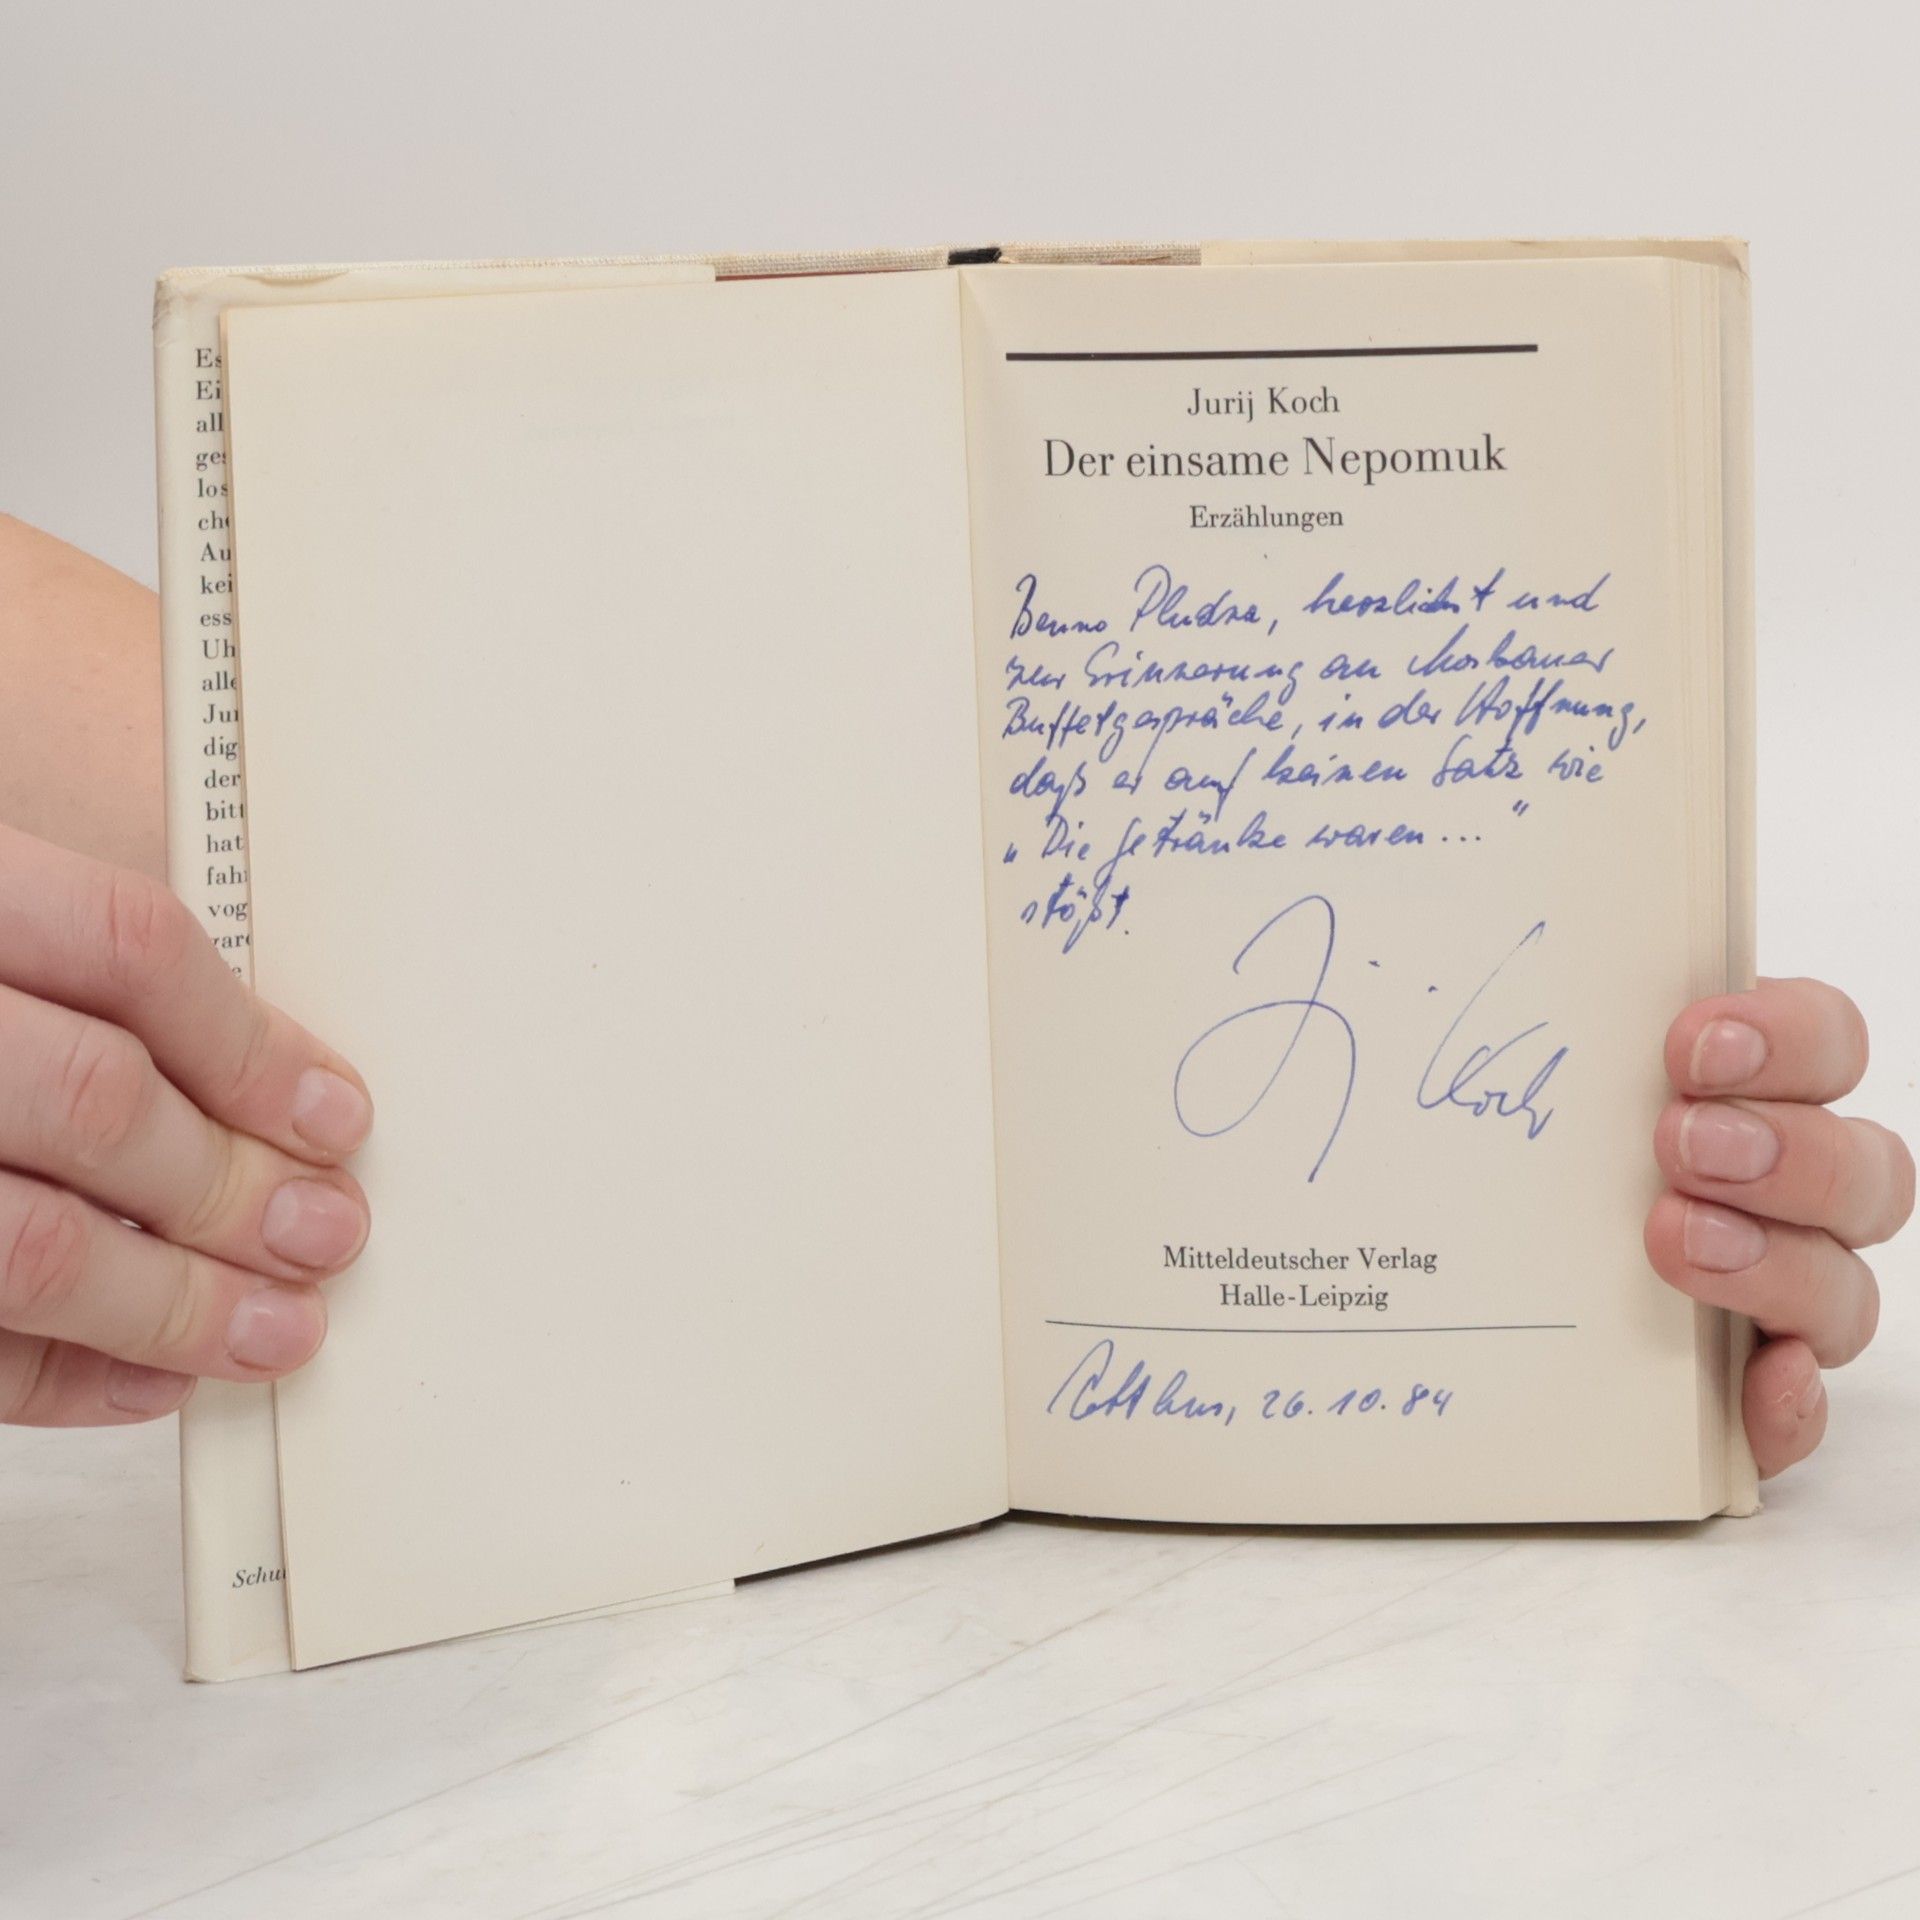 Es
Ei
all
ges
los
che
Au
kei
ess
Uh
alle
Jur
dig
der
bitt
hat
fah
vog
gard
e
Schu
Jurij Koch
Der einsame Nepomuk
Erzählungen
Benno Pludra, herzlichst und
zur Erinnerung an Moskauer
Buffetgespräche, in der Hoffnung,
daß er auf keinen Satz wie
„Die Getränke waren..."
stößt.
Jurij Koch
Mitteldeutscher Verlag
Halle-Leipzig
Cottbus, 26.10.84